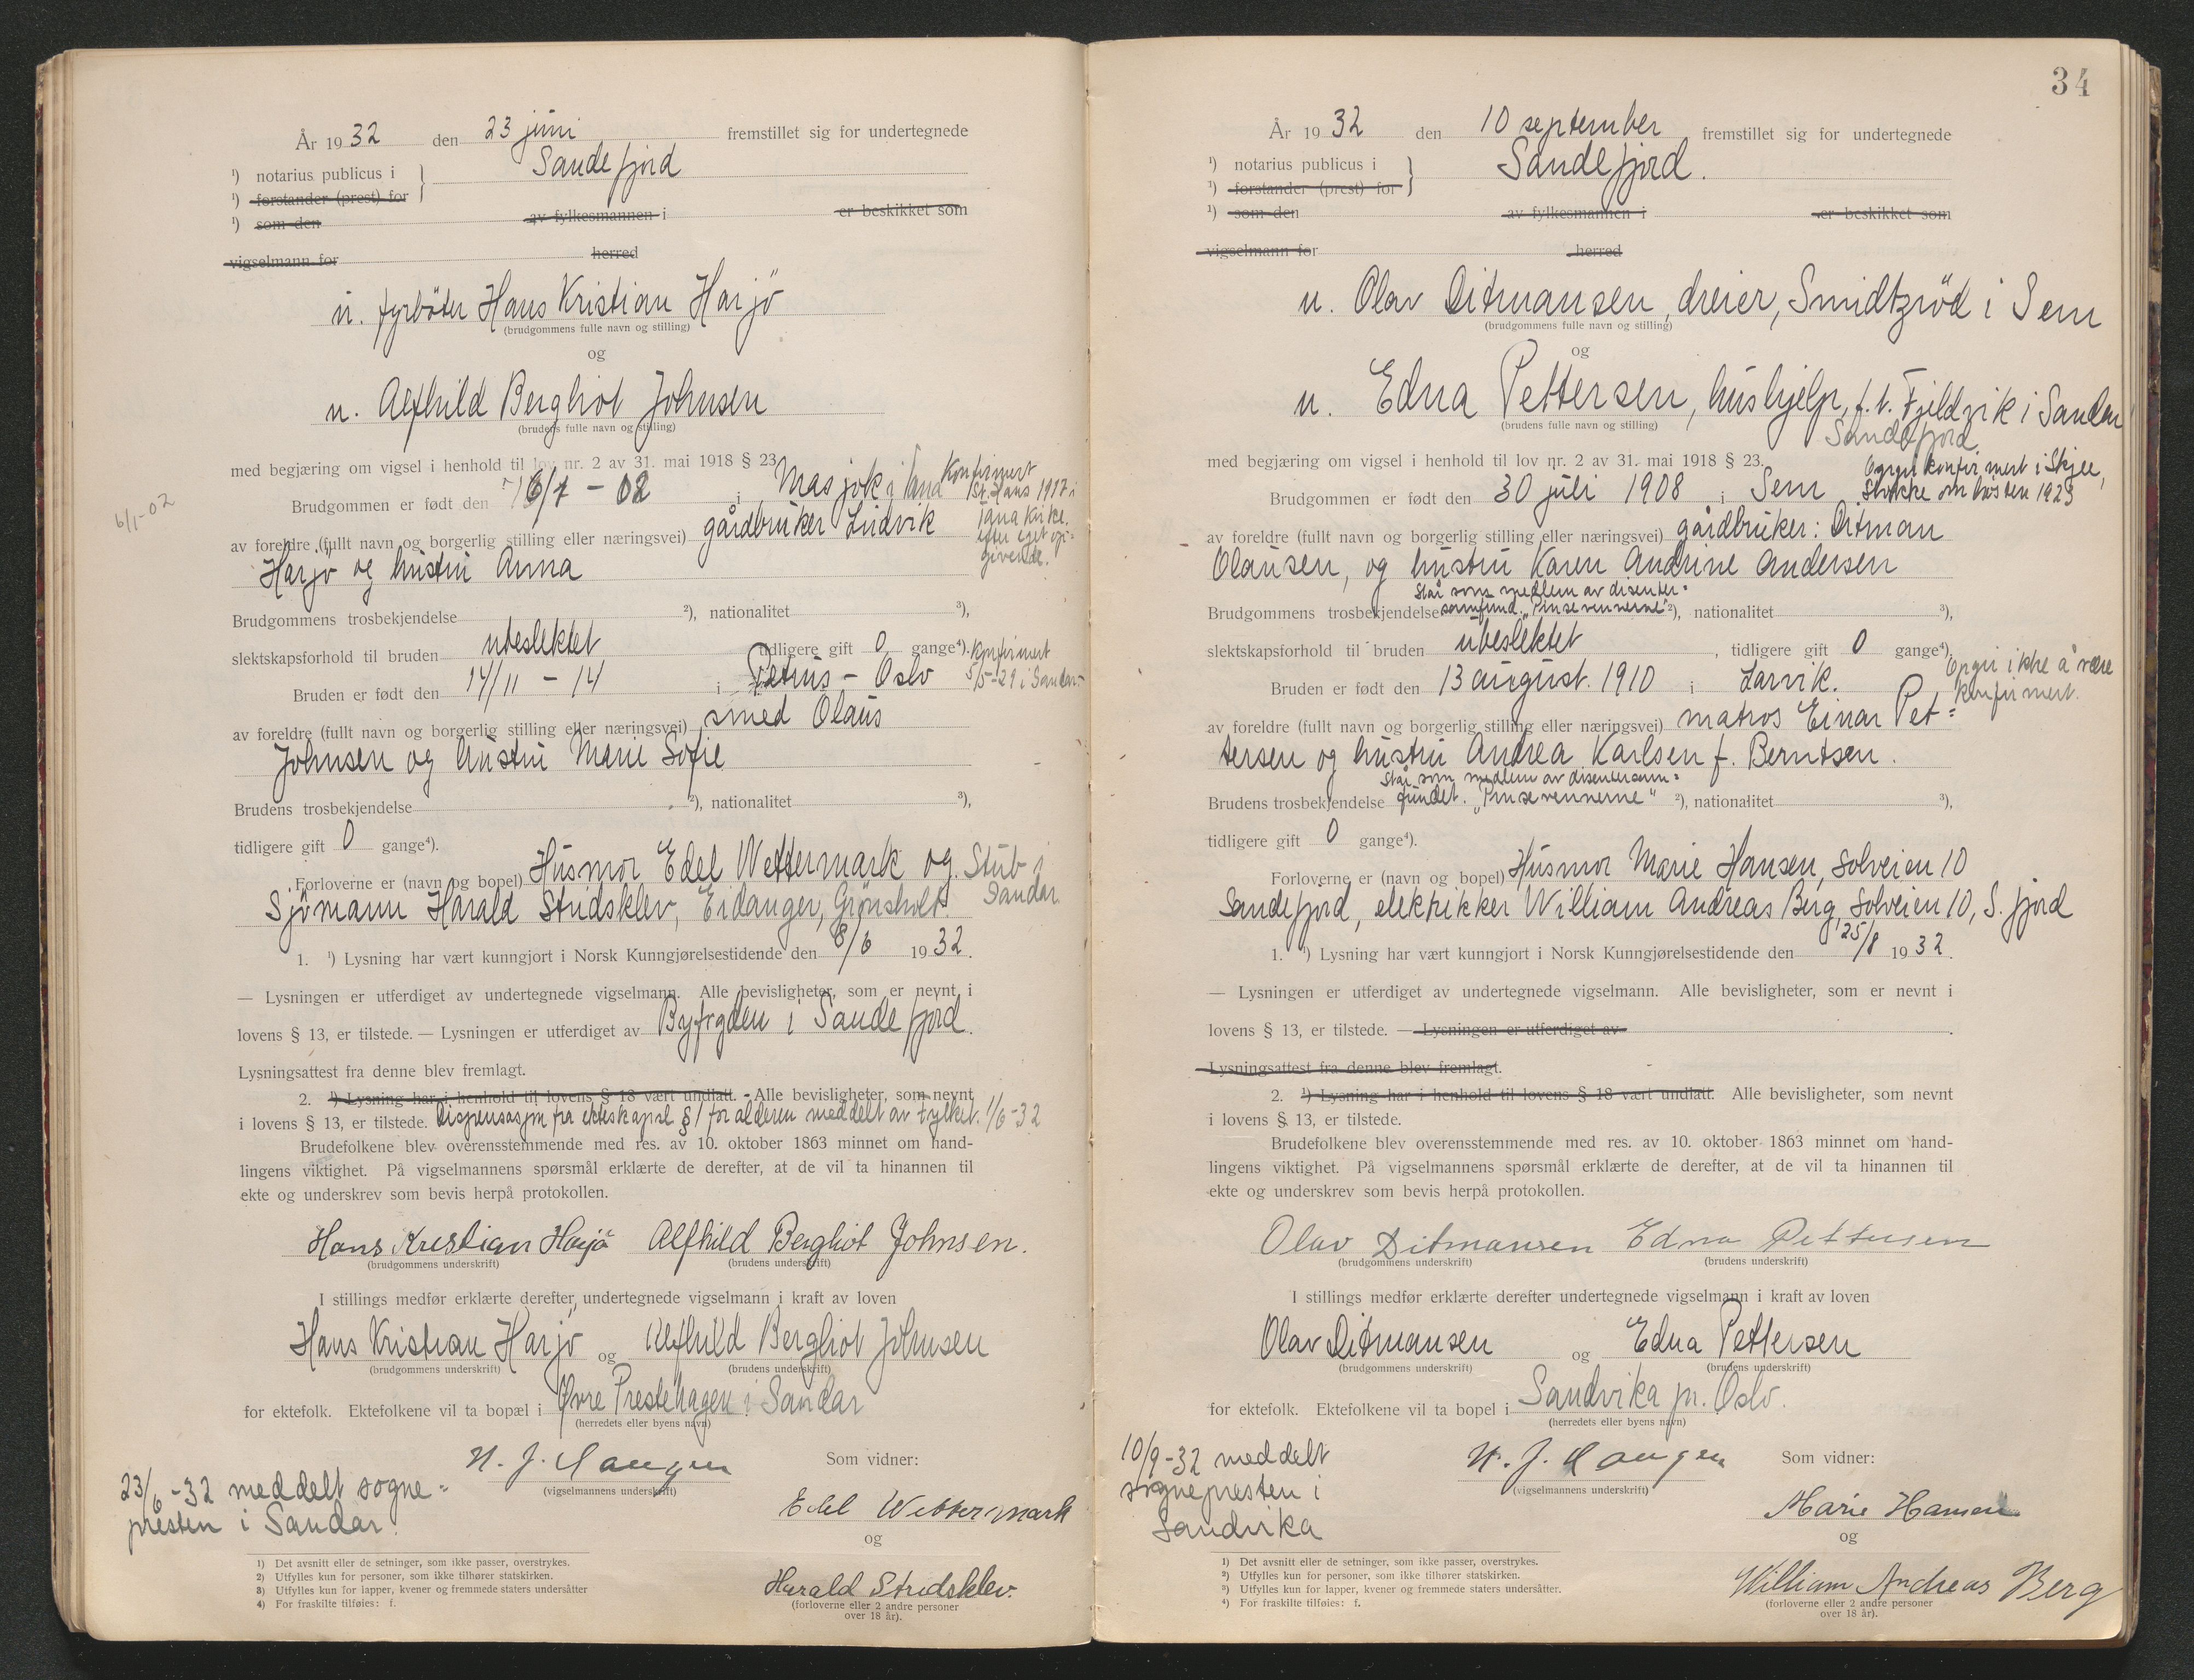 År 1932 den 23 juni fremstillet sig for undertegnede
¹) notarius publicus i } Sandefjord
¹) forstander (prest) for
¹) som den av fylkesmannen i er beskikket som
vigselmann for herred
u. fyrböter Hans Kristian Harjö
(brudgommens fulle navn og stilling)
og
u. Alfhild Bergliot Johnsen
(brudens fulle navn og stilling)
med begjæring om vigsel i henhold til lov nr. 2 av 31. mai 1918 § 23.
Konfirmert
St. Hans 1917 i
Tana kirke.
efter eget opgivende.
6/1-02
Brudgommen er født den 6/7 - 02 i Masjok i Tana
av foreldre (fullt navn og borgerlig stilling eller næringsvei) gårdbruker Ludvik
Harjö og hustru Anna
Brudgommens trosbekjendelse ²), nationalitet ³),
slektskapsforhold til bruden ubeslektet tidligere gift 0 gange⁴).
Konfirmert
5/5-29 i Sandar
Bruden er født den 14/11 - 14 i Petrus - Oslo
av foreldre (fullt navn og borgerlig stilling eller næringsvei) smed Olaus
Johnsen og hustru Marie Sofie
Brudens trosbekjendelse ²), nationalitet ³),
tidligere gift 0 gange⁴).
Forloverne er (navn og bopel) Husmor Edel Wettermark og Stub i
Sandar
Sjömann Harald Stridsklev, Eidanger, Grönsholt.
1. ¹) Lysning har vært kunngjort i Norsk Kunngjørelsestidende den 8/6 1932.
— Lysningen er utferdiget av undertegnede vigselmann. Alle bevisligheter, som er nevnt i
lovens § 13, er tilstede. — Lysningen er utferdiget av Byfogden i Sandefjord.
Lysningsattest fra denne blev fremlagt.
2. ¹) Lysning har i henhold til lovens § 18 vært undlatt. - Alle bevisligheter, som nevnt
i lovens § 13, er tilstede. Dispensasjon fra ekteskapsl. § 1 for alderen meddelt av Fylket. 1/6-32
Brudefolkene blev overensstemmende med res. av 10. oktober 1863 minnet om hand-
lingens viktighet. På vigselmannens spørsmål erklærte de derefter, at de vil ta hinannen til
ekte og underskrev som bevis herpå protokollen.
Hans Kristian Harjö Alfhild Bergliot Johnsen.
(brudgommens underskrift) (brudens underskrift)
I stillings medfør erklærte derefter undertegnede vigselmann i kraft av loven
Hans Kristian Harjö og Alfhild Bergliot Johnsen
(brudgommens underskrift) (brudens underskrift)
for ektefolk. Ektefolkene vil ta bopæl i Øvre Prestehagen i Sandar
(herredets eller byens navn)
N. J. Haugen Som vidner:
(vigselmannens underskrift)
23/6-32 meddelt sogne-
presten i Sandar.
Edel Wettermark
og
Harald Stridsklev.
(forloverne eller 2 andre personer
over 18 år).
1) Det avsnitt eller de setninger, som ikke passer, overstrykes.
2) Utfylles kun for personer, som ikke tilhører statskirken.
3) Utfylles kun for lapper, kvener og fremmede staters undersåtter
4) For fraskilte tilføies: f.
34
År 1932 den 10 september fremstillet sig for undertegnede
¹) notarius publicus i } Sandefjord.
¹) forstander (prest) for
¹) som den av fylkesmannen i er beskikket som
vigselmann for herred
u. Olav Ditmansen, dreier, Smidtsröd i Sem
(brudgommens fulle navn og stilling)
og
u. Edna Pettersen, hushjelp, f.t. Fjeldvik i Sandar
(brudens fulle navn og stilling) Sandefjord
med begjæring om vigsel i henhold til lov nr. 2 av 31. mai 1918 § 23.
Opgir konfirmert i Skjee,
Stokke om hösten 1923
Brudgommen er født den 30 juli 1908 i Sem
av foreldre (fullt navn og borgerlig stilling eller næringsvei) gårdbruker: Ditman
Olausen, og hustru Karen Andrine Andersen
Står som medlem av disenter-
Brudgommens trosbekjendelse samfund. "Pinsevennerne" ²), nationalitet ³),
slektskapsforhold til bruden ubeslektet, tidligere gift 0 gange⁴).
Opgir ikke å være
konfirmert.
Bruden er født den 13 august. 1910 i Larvik.
av foreldre (fullt navn og borgerlig stilling eller næringsvei) matros Einar Pet-
tersen og hustru Andrea Karlsen f. Berntsen.
Står som medlem av disentersam-
Brudens trosbekjendelse fundet. "Pinsevennerne" ²), nationalitet ³),
tidligere gift 0 gange⁴).
Forloverne er (navn og bopel) Husmor Marie Hansen, Solveien 10
Sandefjord, elektriker William Andreas Berg, Solveien 10, S. fjord
1. ¹) Lysning har vært kunngjort i Norsk Kunngjørelsestidende den 25/8 1932.
— Lysningen er utferdiget av undertegnede vigselmann. Alle bevisligheter, som er nevnt i
lovens § 13, er tilstede. — Lysningen er utferdiget av
Lysningsattest fra denne blev fremlagt.
2. ¹) Lysning har i henhold til lovens § 18 vært undlatt. Alle bevisligheter, som nevnt
i lovens § 13, er tilstede.
Brudefolkene blev overensstemmende med res. av 10. oktober 1863 minnet om hand-
lingens viktighet. På vigselmannens spørsmål erklærte de derefter, at de vil ta hinannen til
ekte og underskrev som bevis herpå protokollen.
Olav Ditmansen Edna Pettersen
(brudgommens underskrift) (brudens underskrift)
I stillings medfør erklærte derefter undertegnede vigselmann i kraft av loven
Olav Ditmansen og Edna Pettersen
(brudgommens underskrift) (brudens underskrift)
for ektefolk. Ektefolkene vil ta bopel i Sandvika pr. Oslo.
(herredets eller byens navn)
10/9-32 meddelt
sognepresten i
Sandvika
N. J. Haugen Som vidner:
(vigselmannens underskrift)
Marie Hansen
og
William Andreas Berg
(forloverne eller 2 andre personer
over 18 år).
1) Det avsnitt eller de setninger, som ikke passer, overstrykes.
2) Utfylles kun for personer, som ikke tilhører statskirken.
3) Utfylles kun for lapper, kvener og fremmede staters undersåtter.
4) For fraskilte tilføies: f.